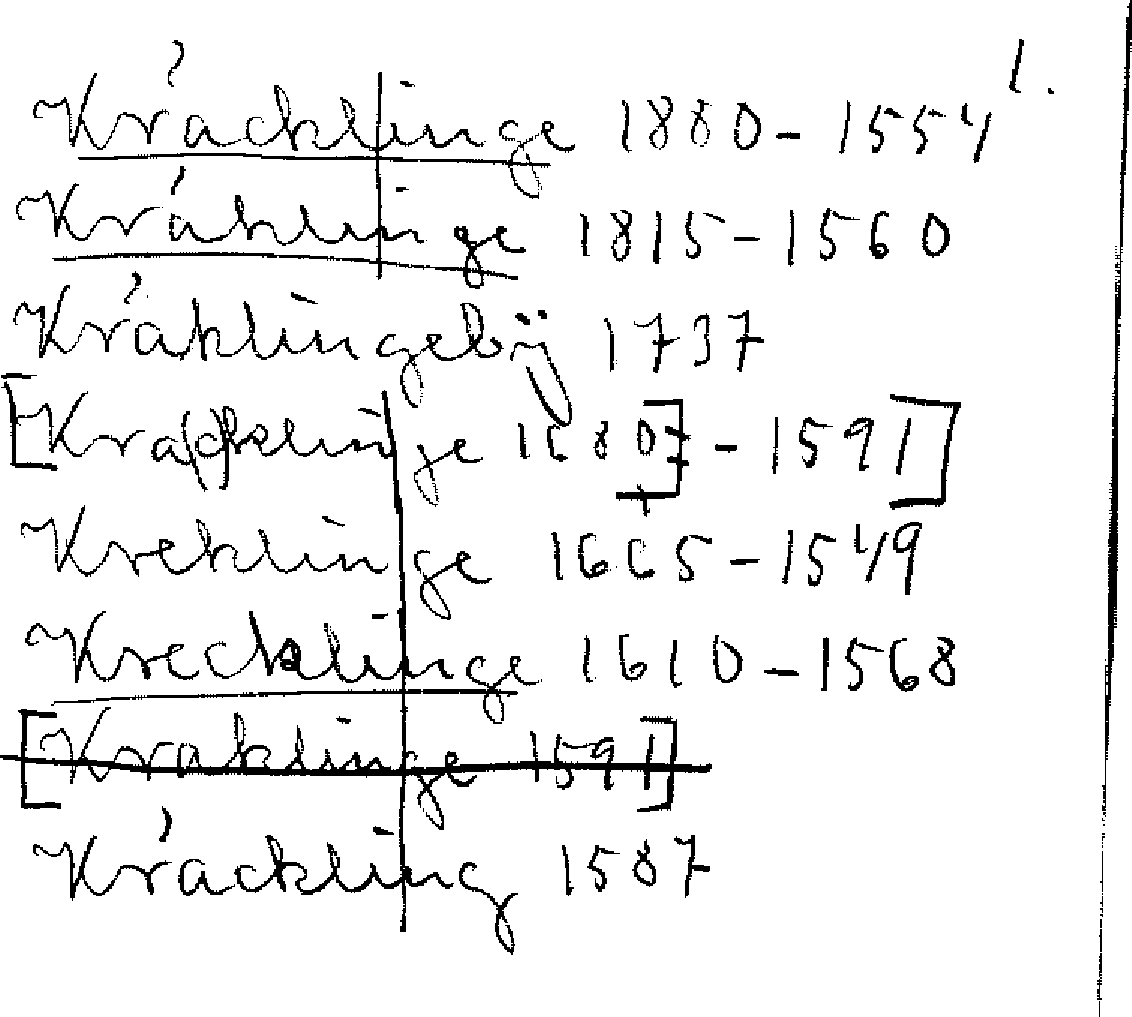 1.
Kräcklinge 1880-1554
Kräklinge 1815-1560
Kräklingebÿ 1737
[Kra(c)klinge 1680] - 1591]
Kreklinge 1665-1549
Krecklinge 1610-1568
[Kraklinge 1591]
Kräckling 1587